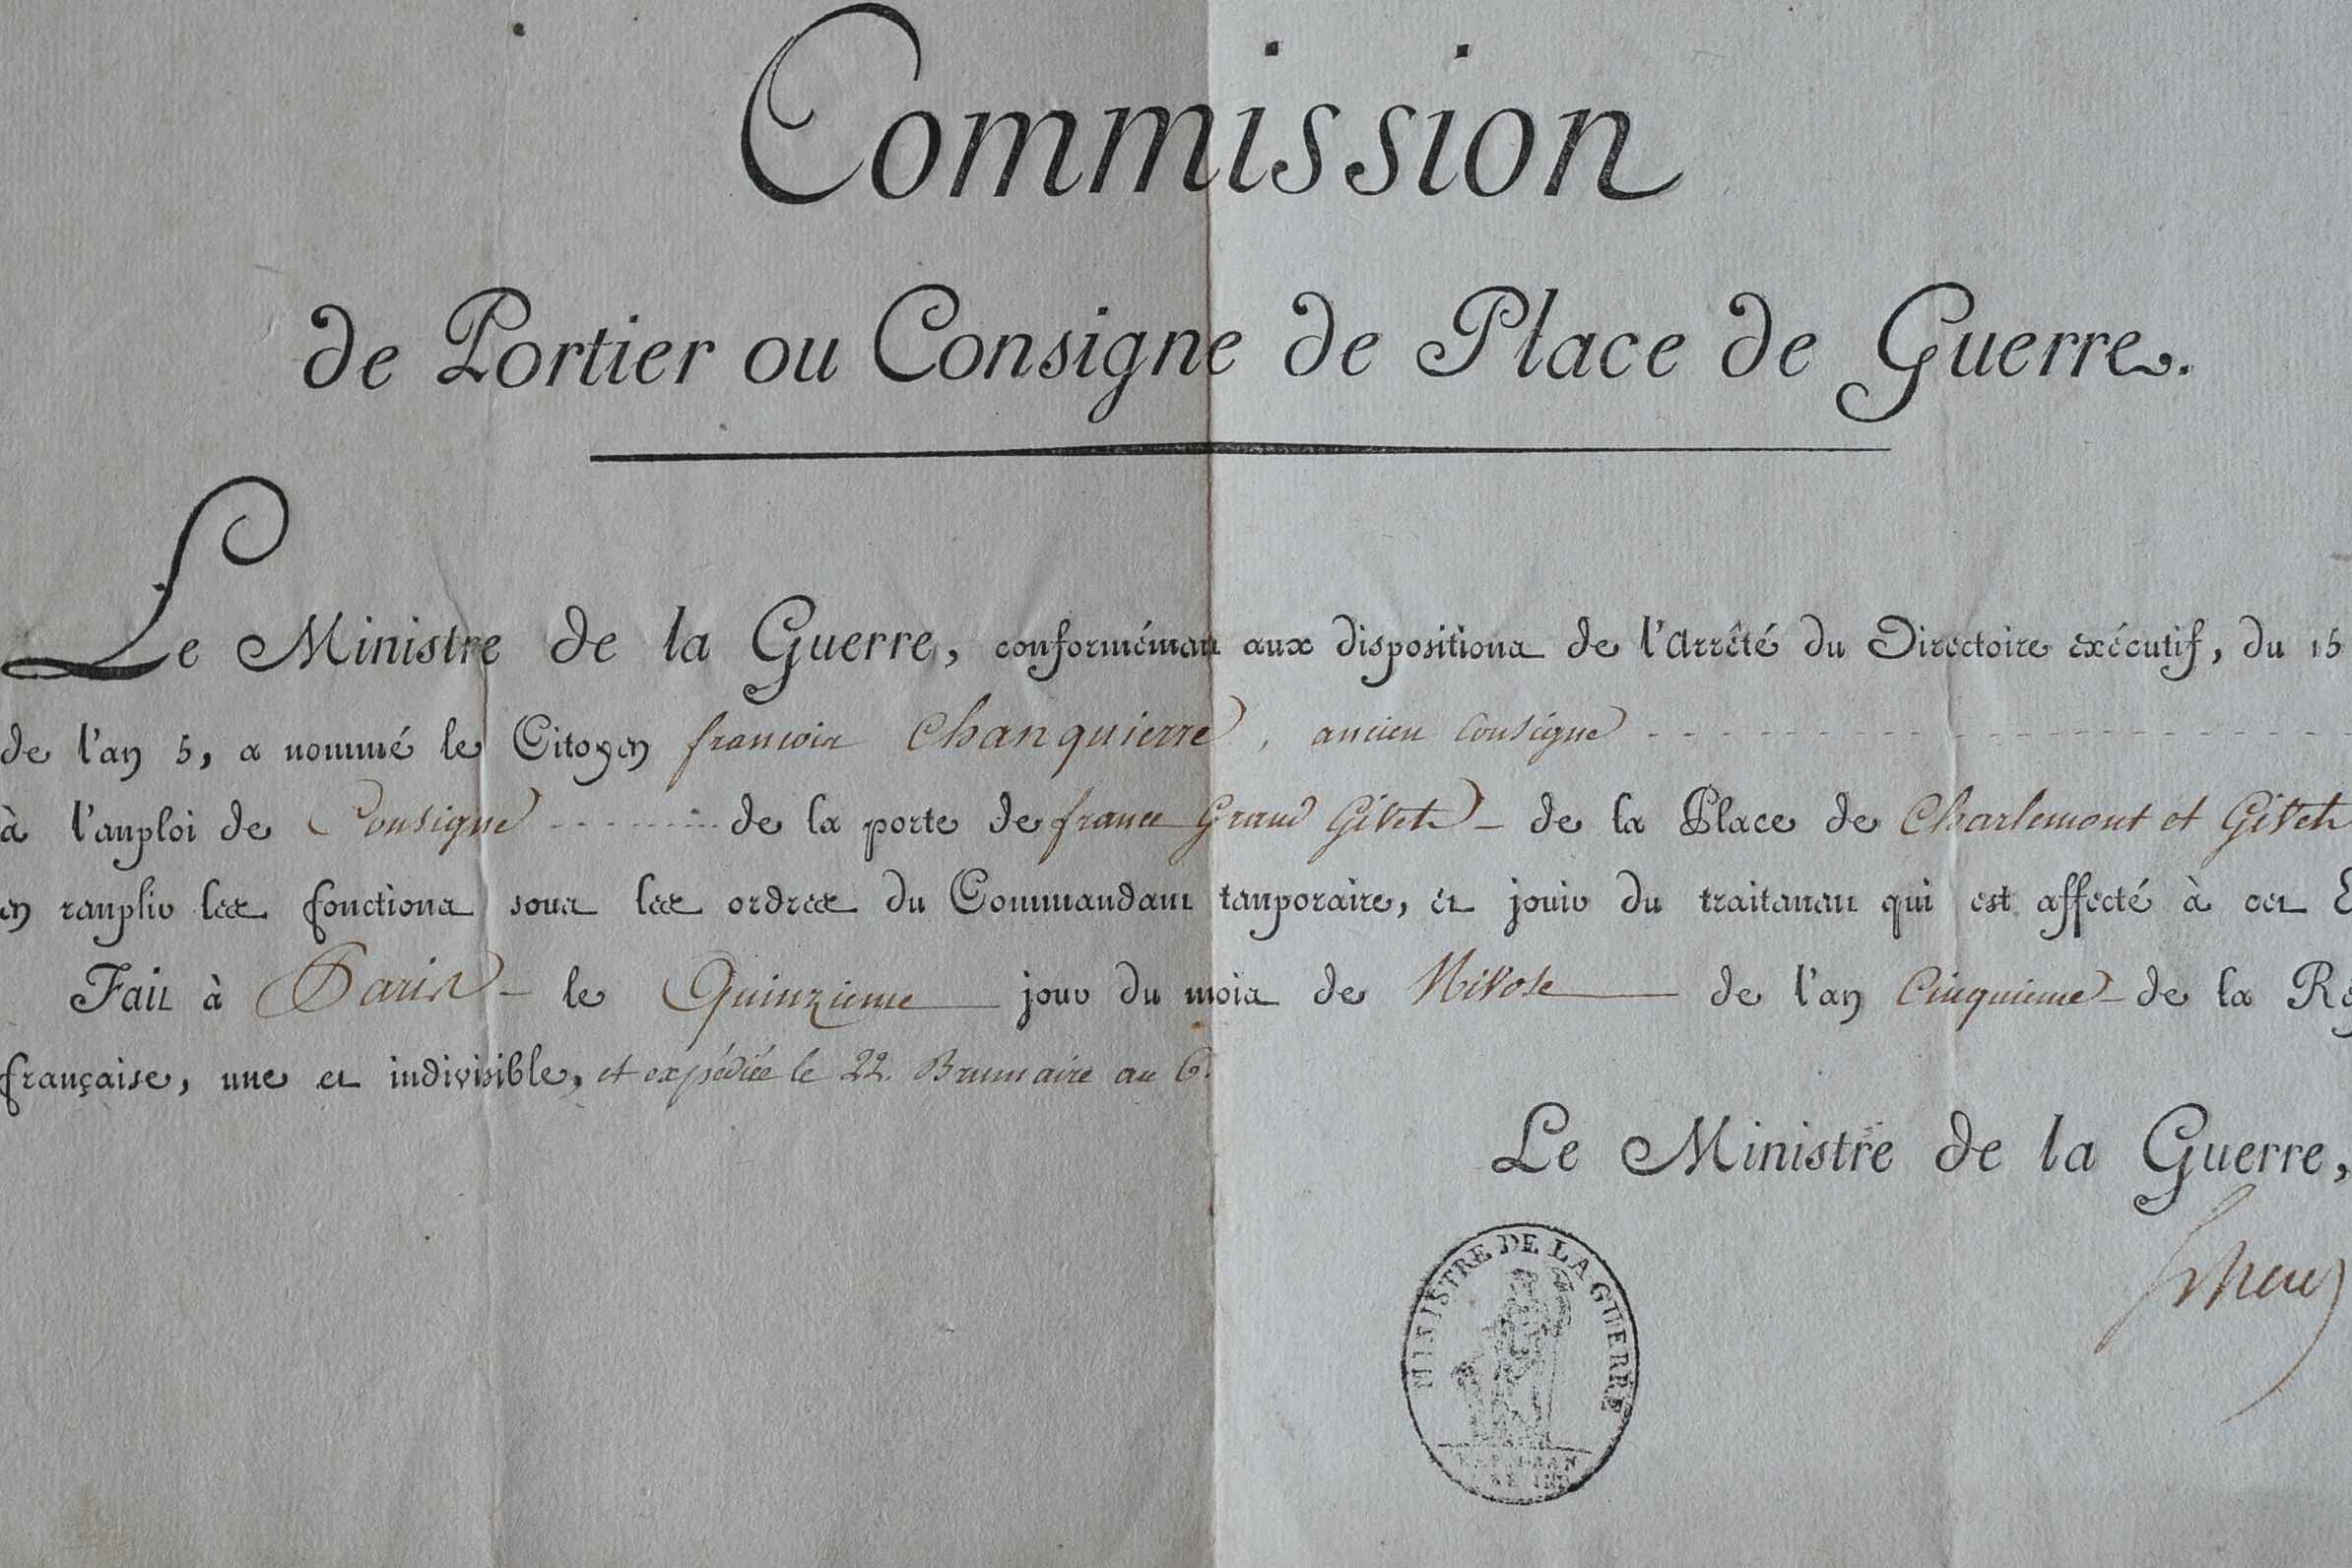 Commission
de Portier ou Consigne de Place de Guerre.
Le Ministre de la Guerre, conformément aux dispositions de l'Arrêté du Directoire exécutif, du 15
de l'an 5, a nommé le Citoyen francois Chanquierre, ancien Consigne
à l'emploi de Consigne de la porte de france Grand Givet de la Place de Charlemont et Givet
en remplir les fonctions sous les ordres du Commandant temporaire, et jouir du traitement qui est affecté à cet E
Fait à Paris le Quinzieme jour du mois de Nivose de l'an Cinquieme de la Ré
française, une et indivisible, et expédiée le 22. Brumaire an 6.
Le Ministre de la Guerre,
MINISTRE DE LA GUERRE